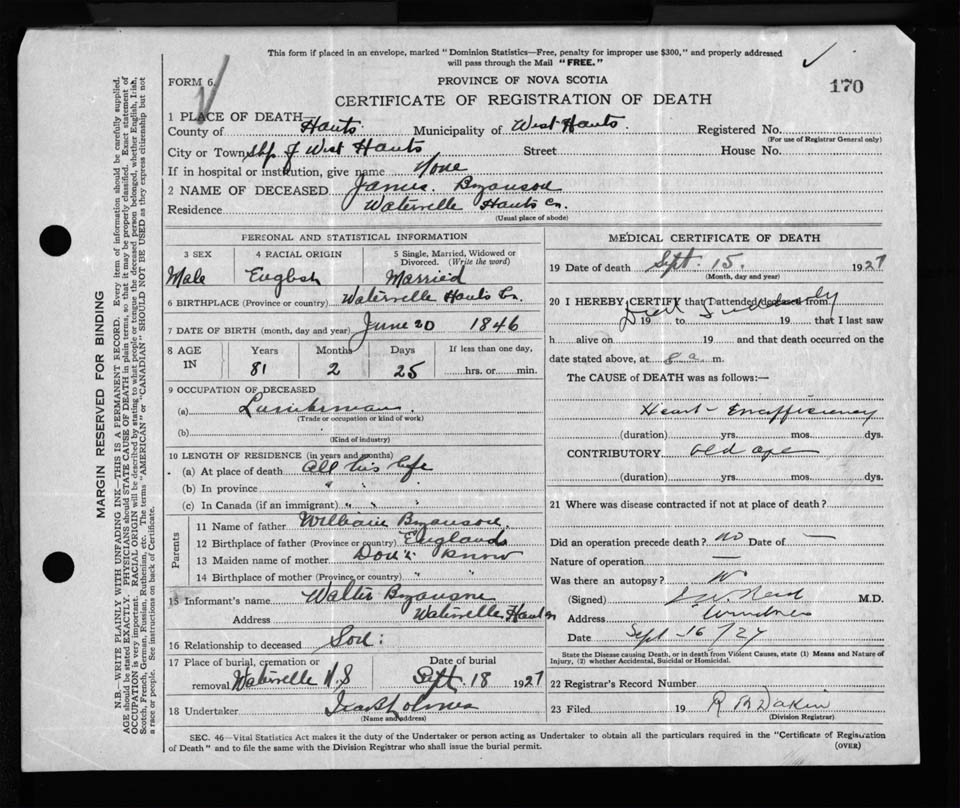 This form if placed in an envelope, marked "Dominion Statistics—Free, penalty for improper use $300," and properly addressed
will pass through the Mail "FREE."
FORM 6.
PROVINCE OF NOVA SCOTIA
170
CERTIFICATE OF REGISTRATION OF DEATH
1 PLACE OF DEATH—
County of Hants Municipality of West Hants. Registered No.
(For use of Registrar General only)
City or Town Shp of West Hants Street House No.
If in hospital or institution, give name None
2 NAME OF DECEASED James
Residence Hants Co.
(Usual place of abode)
PERSONAL AND STATISTICAL INFORMATION
3 SEX 4 RACIAL ORIGIN 5 Single, Married, Widowed or Divorced. (Write the word)
Male English Married
6 BIRTHPLACE (Province or country) Hants Co.
7 DATE OF BIRTH (month, day and year) June 20 1846
8 AGE IN Years Months Days If less than one day,
81 2 25 hrs. or min.
9 OCCUPATION OF DECEASED
(a) Lumberman
(Trade or occupation or kind of work)
(b)
(Kind of industry)
10 LENGTH OF RESIDENCE (in years and months)
(a) At place of death All his life
(b) In province " " "
(c) In Canada (if an immigrant) " " "
Parents
11 Name of father William
12 Birthplace of father (Province or country) England
13 Maiden name of mother Don't know
14 Birthplace of mother (Province or country) " "
15 Informant's name Walter
Address Hants Co
16 Relationship to deceased Son
17 Place of burial, cremation or removal N.S Date of burial Sept. 18 1927
18 Undertaker
(Name and address)
MEDICAL CERTIFICATE OF DEATH
19 Date of death Sept. 15. 1927
(Month, day and year)
20 I HEREBY CERTIFY that I attended deceased from
Died Suddenly
19 to 19 that I last saw
h alive on 19 and that death occurred on the
date stated above, at 8 a. m.
The CAUSE of DEATH was as follows:—
Heart
(duration) yrs. mos. dys.
CONTRIBUTORY old age
(duration) yrs. mos. dys.
21 Where was disease contracted if not at place of death?
Did an operation precede death? No Date of —
Nature of operation —
Was there an autopsy? N
(Signed) M.D.
Address Windsor
Date Sept 16/27
State the Disease causing Death, or in death from Violent Causes, state (1) Means and Nature of
Injury, (2) whether Accidental, Suicidal or Homicidal.
22 Registrar's Record Number
23 Filed 19 Dakin
(Division Registrar)
SEC. 46—Vital Statistics Act makes it the duty of the Undertaker or person acting as Undertaker to obtain all the particulars required in the "Certificate of Registration
of Death" and to file the same with the Division Registrar who shall issue the burial permit.
(OVER)
MARGIN RESERVED FOR BINDING
N.B.—WRITE PLAINLY WITH UNFADING INK—THIS IS A PERMANENT RECORD. Every item of information should be carefully supplied.
AGE should be stated EXACTLY. PHYSICIANS should STATE CAUSE OF DEATH in plain terms, so that it may be properly classified. Exact statement of
OCCUPATION is very important. RACIAL ORIGIN will be described by stating to what people or tongue the deceased person belonged, whether English, Irish,
Scotch, French, German, Russian, Ruthenian, etc. The terms "AMERICAN" or "CANADIAN" SHOULD NOT BE USED as they express citizenship but not
a race or people. See instructions on back of Certificate.